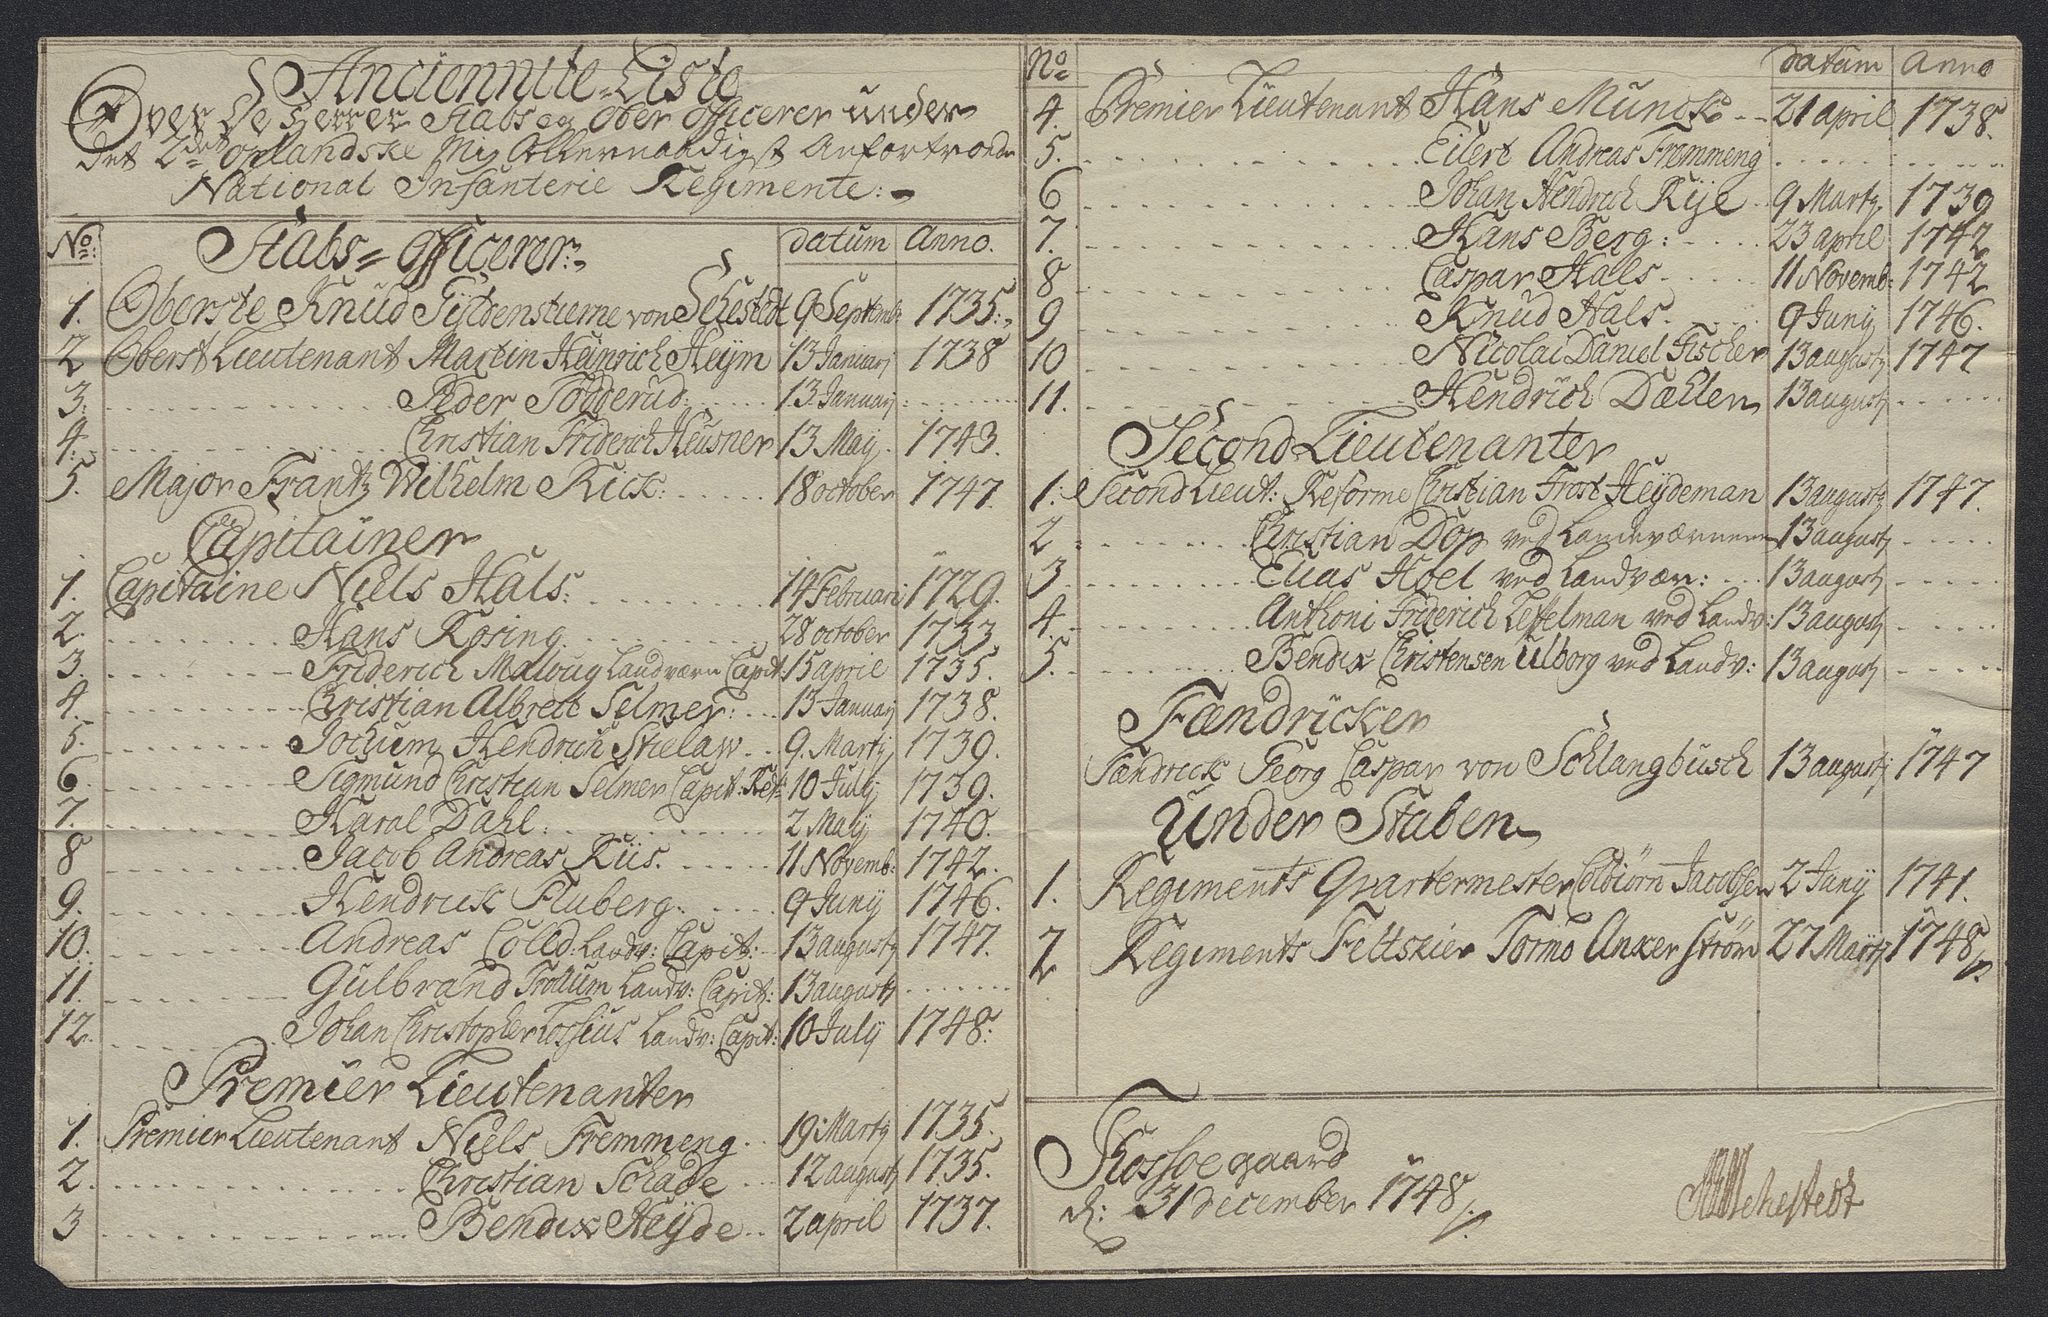 Anciennite Liste
Over De Herrer Stabs og Ober Officerer under
det 2det oplandske Mig Allernaadigst Anfortroede
National Infanterie Regimente:
No: Stabs=officerer: datum Anno.
1. Oberste Knud Gÿldenstierne von Sehestedt 9 Septemb: 1735.
2 Oberst Lieutenant Martin Heinrich Heÿm 13 Januarj 1738
3. Peder Todderud: 13 Januarj
4. Christian Friderich Heusner 13 Maij. 1743.
5. Major Frantz Wilhelm Kick: 18 october 1747.
Capitainer
1. Capitaine Niels Hals: 14 Februari: 1729.
2. Hans Kosing 28 october 1733
3. Friderich Maloug Landværn Capit: 15 april 1735.
4. Christian Albrett Selmer: 13 Januarj 1738.
5. Jochum Hendrich Stielaw 9. Martj 1739.
6. Sigmund Christian Selmer Capit: Ref: 10 Julij 1739.
7. Karol Dahl: 2 Maij 1740.
8 Jacob Andreas Riis. 11 Novemb: 1742.
9. Hendrick Fluberg. 9 Junij 1746.
10. Andreas Colled: Landv: Capit: 13 augustj 1747.
11. Gulbrand Trollum Landv: Capit: 13 augustj
12. Johan Christopher Lossius Landv: Capit: 10 Julij 1748.
Premier Lieutenanter
1. Premier Lieutenant Niels Fremmeng. 19 Martj 1735.
2. Christian Schade 12 augustj 1735.
3 Bendix Heÿde 2 april 1737.
No datum Anno
4. Premier Lieutenant Hans Munck 21 april 1738.
5. Eilert Andreas Fremmeng
6 Johan Hendrich Rije 9 Martj. 1739
7. Hans Berg: 23 april 1742
8 Caspar Hals. 11 Novemb: 1742
9 Knud Hals. 9 Junij 1746.
10 Nicolai Daniel Fischer 13 augustj 1747
11. Hendrich Dæhlen 13 augustj
Second Lieutenanter
1. Second Lieut: Reforme Christian Frost Heÿdeman 13 augustj 1747.
2 Christian Dop ved Landeværnene 13 augustj
3 Elias Hoel ved Landvær: 13 augustj
4. Anthoni Friderich Teffelman ved Landv: 13 augustj
5. Bendix Christensen Ulborg ved Landv: 13 augustj
Fændricker
Fændrick Georg Caspar von Schlangbusch 13 augustj 1747
Under Staben
1. Regiments Qvartermester Colbiørn Jacobsen 2 Junij 1741.
2 Regiments Feltskier Tormo Anker Strøm 27 Martj 1748
Fossoegaard
d: 31 December 1748
Sehestedt